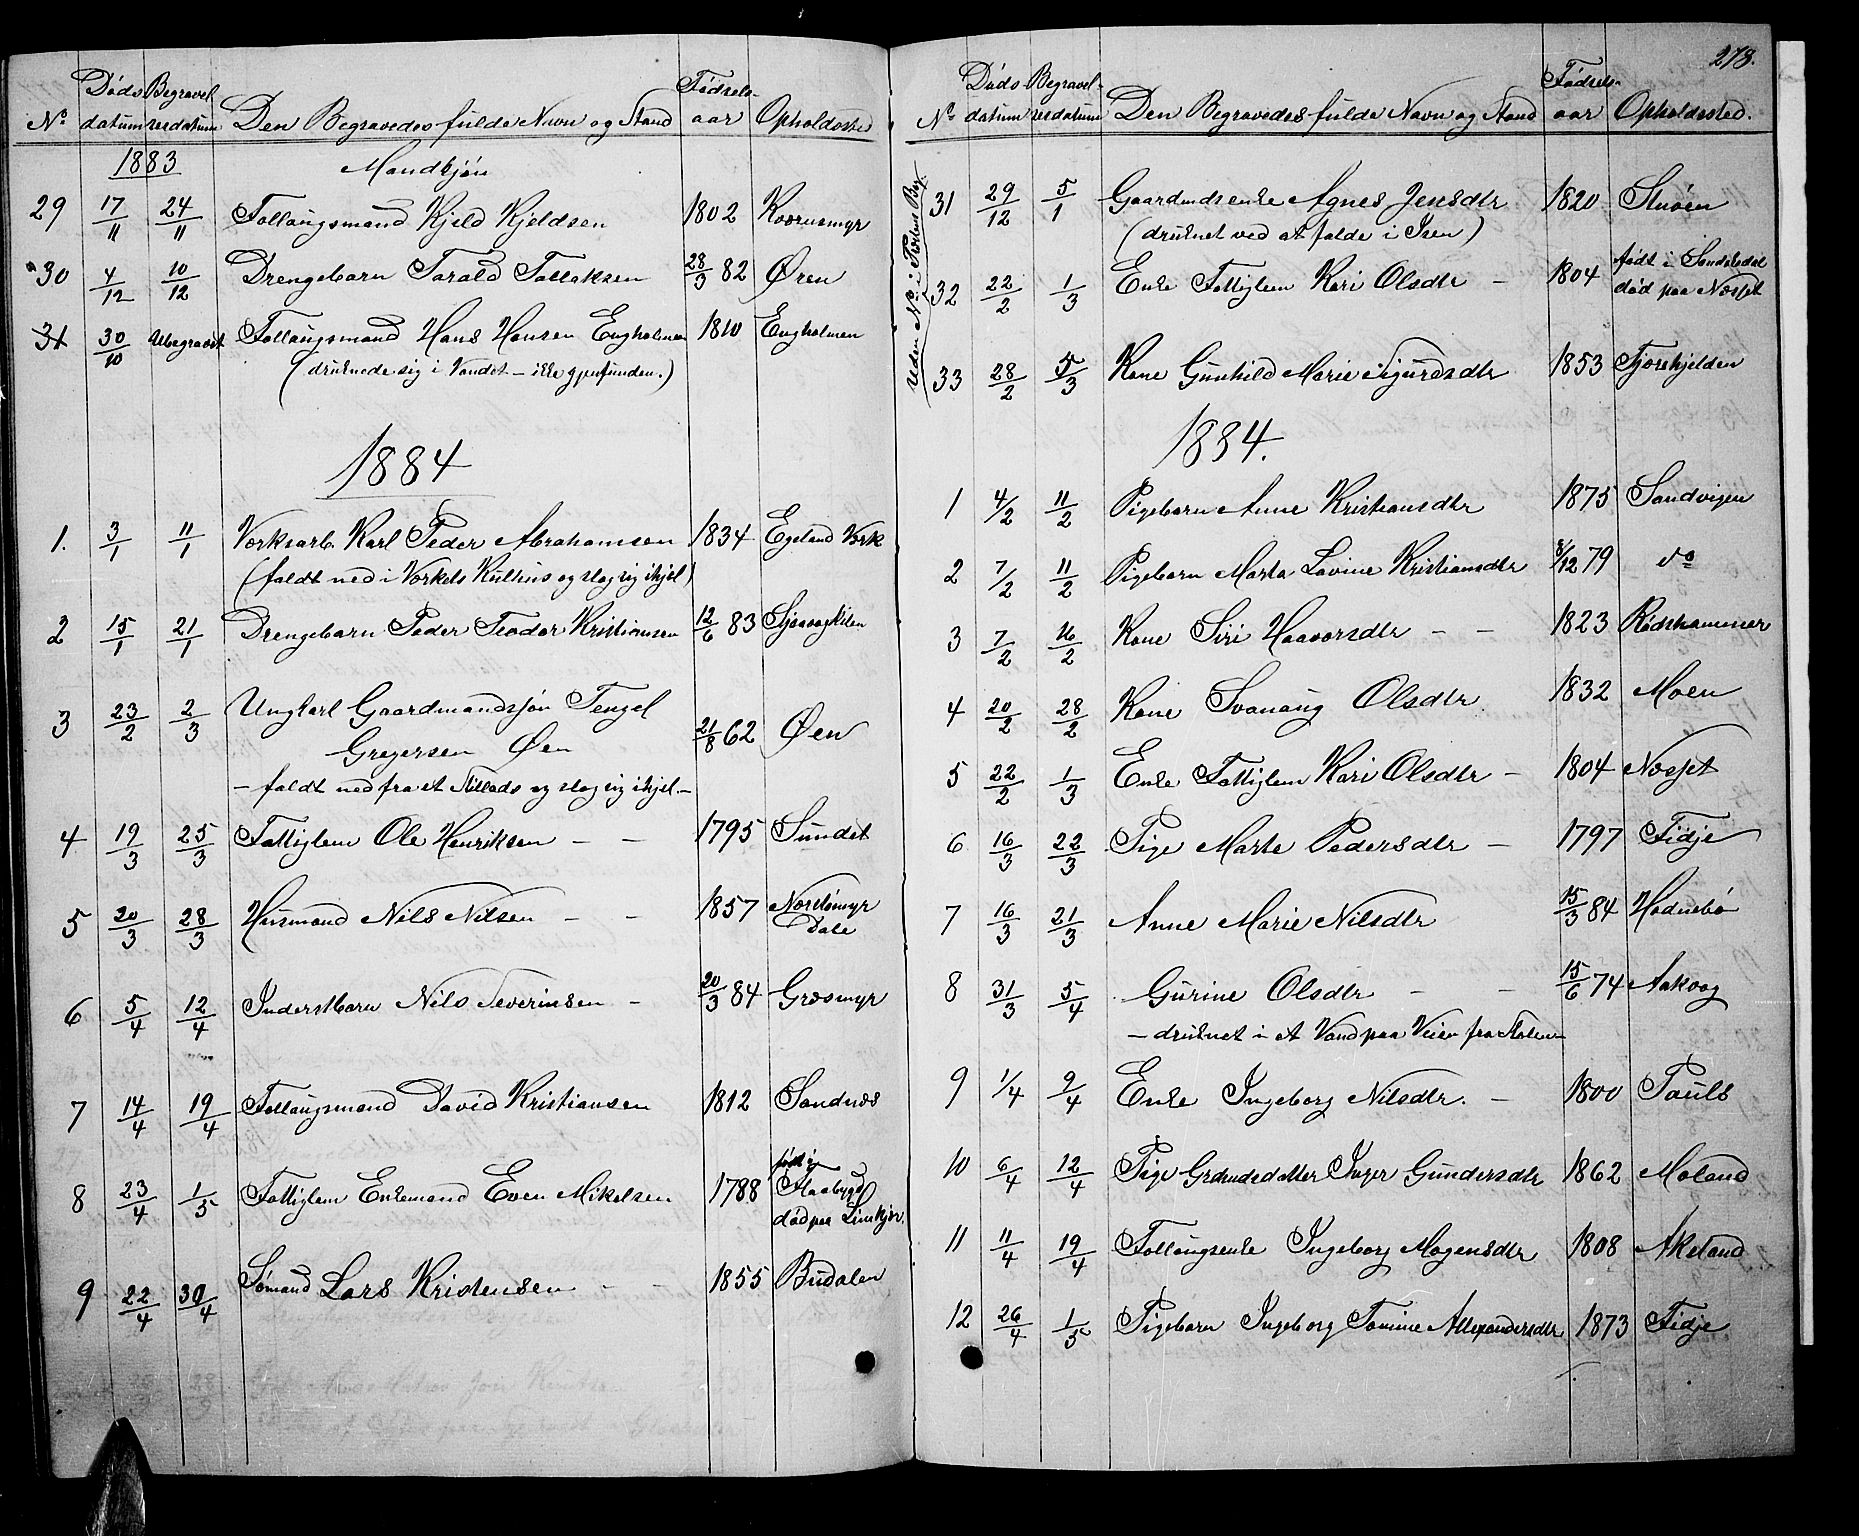 Døds Begravel Fødsels-
No datum sesdatum Den Begravedes fulde Navn og Stand aar Opholdssted
1883 Mandkjøn
29 17/11 24/11 Føllaugsmand Kjeld Kjeldsen 1802
30 4/12 10/12 Drengebarn Tarald Tallaksen 28/3 82 Øren
31 30/10 Ubegravet Føllaugsmand Hans Hansen Engholmen 1810 Engholmen
(druknede sig i Vandet - ikke gjenfunden.)
1884
1. 3/1 11/1 Værksarb. Karl Peder Abrahamsen 1834 Egeland Værk
(faldt ned i Værkets Kulhus og slog sig ihjel)
2 15/1 21/1 Drengebarn Peder Teodor Kristiansen 12/6 83
3 23/2 2/3 Ungkarl Gaardmandssøn Tengel
Gregersen Øen 21/8 62 Øen
- faldt ned fra et Stillads og slog sig ihjel -
4 19/3 25/3 Fattiglem Ole Henriksen - - 1795 Sundet
5 20/3 28/3 Husmand Nils Nilsen - - 1857
Dale
6 5/4 12/4 Inderstbarn Nils Severinsen - 20/3 84 Græsmyr
7 14/4 19/4 Føllaugsmand David Kristiansen 1812 Sandnæs
8 23/4 1/5 Fattiglem Enkemand Even Mikelsen 1788 født i
død paa
9 22/4 30/4 Sømand Lars Kristensen - - 1855 Budalen
278.
Døds Begravel- Fødsels-
No datum sesdatum Den Begravedes fulde Navn og Stand aar Opholdssted.
31 29/12 5/1 Gaardmdsenke Agnes Jensdtr 1820 Stuøen
(druknet ved at falde i Isen)
32 22/2 1/3 Enke Fattiglem Kari Olsdtr - 1804 født i Søndeledal
død paa Næset
33 28/2 5/3 Kone Gunhild Marie Sigurdsdtr 1853 Fjøreskjelden
1884.
1 4/2 11/2 Pigebarn Anne Kristiansdtr 1875 Sandvigen
2 7/2 11/2 Pigebarn Marta Lovine Kristiansdtr 8/12 79 do
3 7/2 16/2 Kone Siri Haavorsdtr - - 1823 Rødshammer
4 20/2 28/2 Kone Svanaug Olsdtr 1832 Moen
5 22/2 1/3 Enke Fattiglem Kari Olsdtr - 1804 Næset
6 16/3 22/3 Pige Marte Pedersdtr - 1797 Fidje
7 16/3 21/3 Anne Marie Nilsdtr 15/3 84 Hødnebø
8 31/3 5/4 Gurine Olsdtr - - 15/6 74 Aakvog
- druknet i et Vand paa Veien fra Skolen -
9 1/4 9/4 Enke Ingeborg Nilsdtr. - 1800
10 6/4 12/4 Pige Grdmdsdatter Inger Gundersdtr 1862 Moland
11 11/4 19/4 Føllaugsenke Ingeborg Mogensdtr 1808 Akeland
12 26/4 1/5 Pigebarn Ingeborg Tomine Allexandersdtr 1873 Fidje